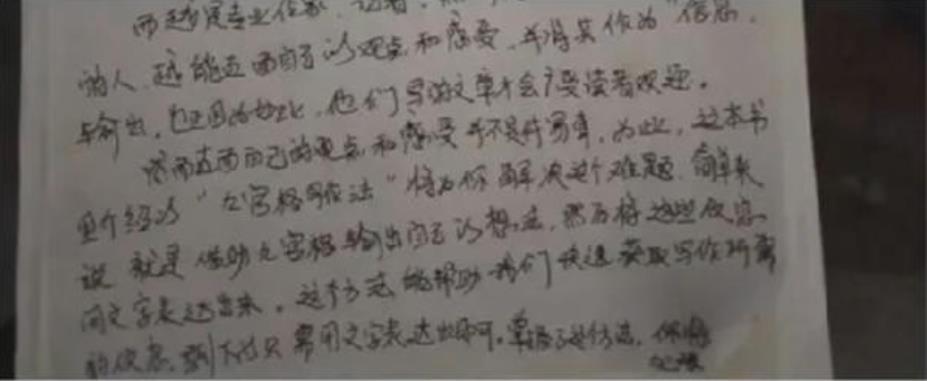 而越是专业作家、记者,
的人,越能直面自己的观点和感受,并将其作为"信息"
输出,也正因为如此,他们写的文章才会广受读者欢迎。
然而直面自己的观点和感受并不是件易事,为此,这本书
里介绍的"九宫格写作法"将为你解决这个难题,简单来
说就是借助九宫格输出自己的想法,然后将这些信息
用文字表达出来。这个方法能帮助我们快速获取写作所需
的信息,剩下的只需用文字表达出即可。掌握了这个方法,你将